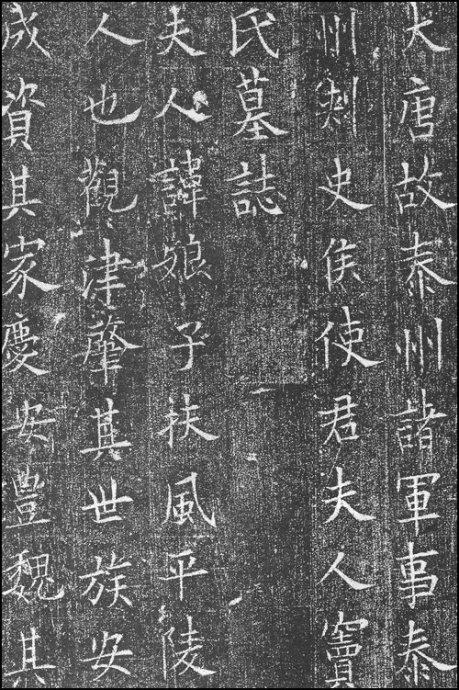 大唐故泰州諸軍事泰
州刺史侯使君夫人竇
氏墓誌
夫人諱娘子扶風平陵
人也觀津肇其世族安
成資其家慶安豐魏其